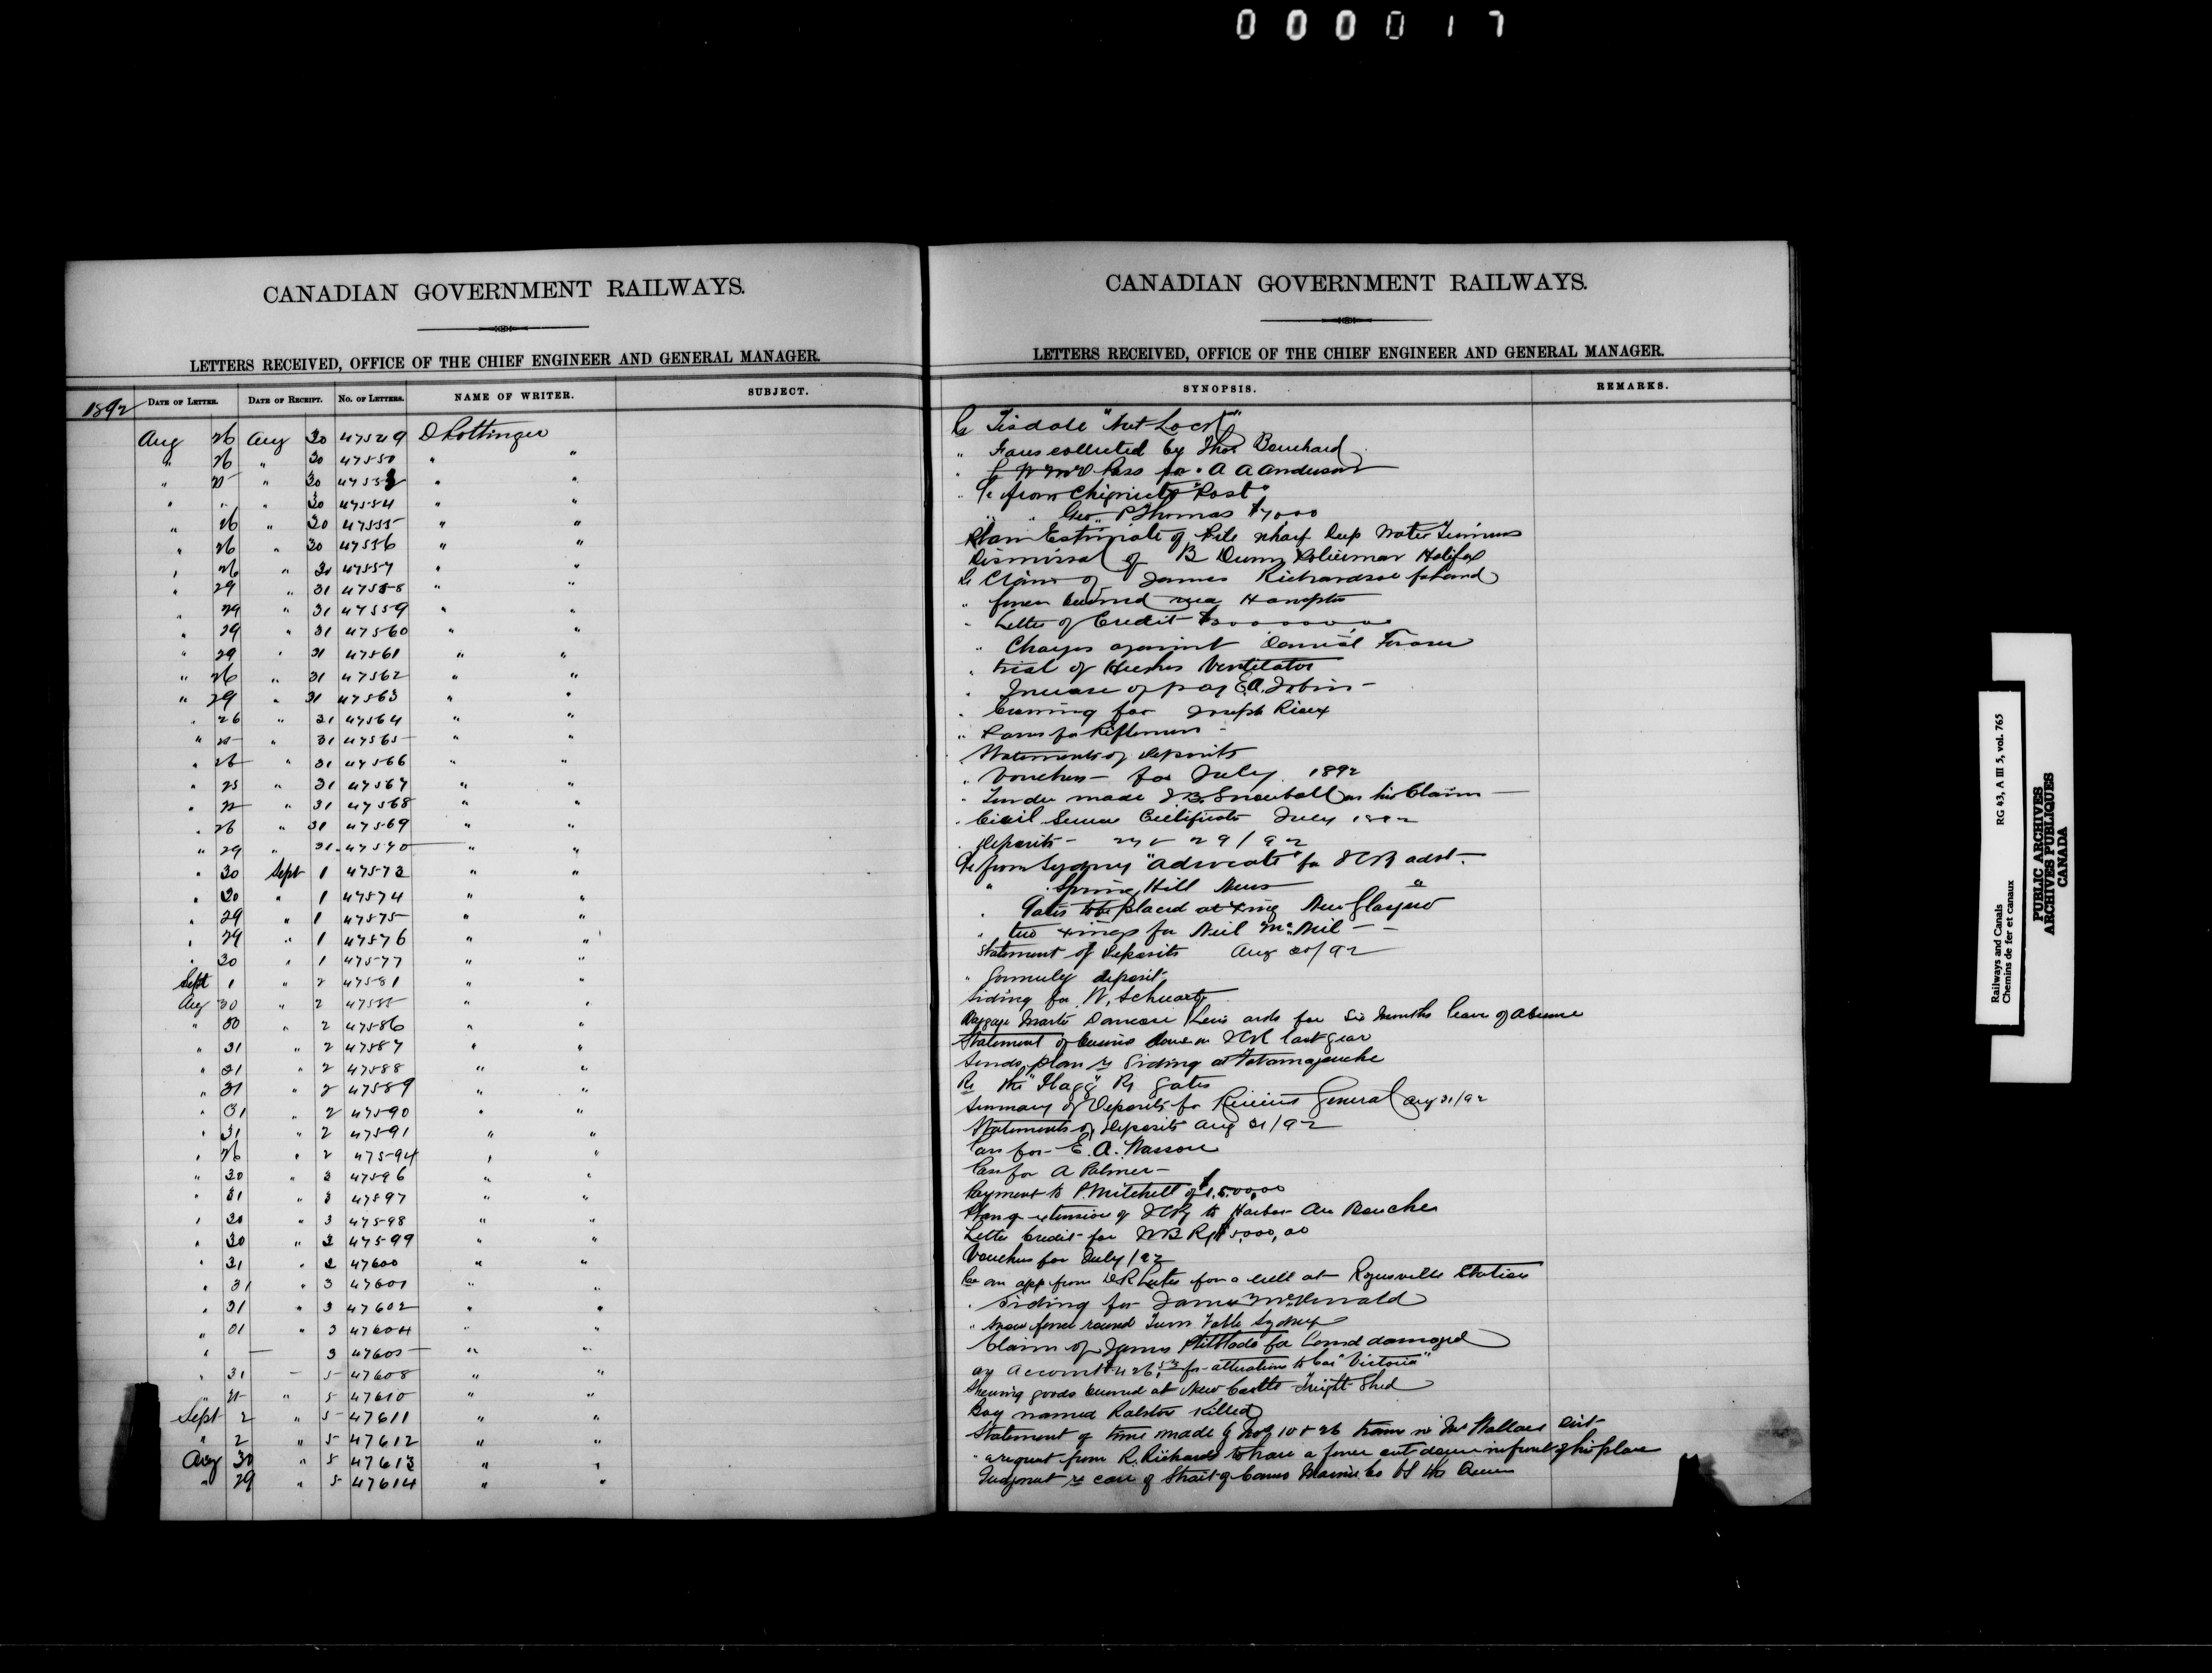 000017
CANADIAN GOVERNMENT RAILWAYS.
LETTERS RECEIVED, OFFICE OF THE CHIEF ENGINEER AND GENERAL MANAGER.
1892 DATE OF LETTER. DATE OF RECEIPT. NO. OF LETTERS. NAME OF WRITER. SUBJECT.
Aug 26 Aug 30 47549 D Pottinger
" 26 " 30 47550 " "
" 25 " 30 47553 " "
" " " 30 47554 " "
" 26 " 30 47555 " "
" 26 " 30 47556 " "
" 26 " 31 47557 " "
" 29 " 31 47558 " "
" 29 " 31 47559 " "
" 29 " 31 47560 " "
" 29 " 31 47561 " "
" 26 " 31 47562 " "
" 29 " 31 47563 " "
" 26 " 31 47564 " "
" 25 " 31 47565 " "
" 26 " 31 47566 " "
" 25 " 31 47567 " "
" " 31 47568 " "
" 26 " 31 47569 " "
" 29 " 31 47570 " "
" 30 Sept 1 47573 " "
" 30 " 1 47574 " "
" 29 " 1 47575 " "
" 29 " 1 47576 " "
" 30 " 1 47577 " "
Sept 1 " 2 47581 " "
Aug 30 " 2 47585 " "
" 30 " 2 47586 " "
" 31 " 2 47587 " "
" 31 " 2 47588 " "
" 31 " 2 47589 " "
" 31 " 2 47590 " "
" 31 " 2 47591 " "
" 26 " 2 47594 " "
" 30 " 3 47596 " "
" 31 " 3 47597 " "
" 30 " 3 47598 " "
" 30 " 3 47599 " "
" 31 " 3 47600 " "
" 31 " 3 47601 " "
" 31 " 3 47602 " "
" 31 " 3 47604 " "
" — 3 47605 " "
" 31 — 5 47608 " "
" " 5 47610 " "
Sept 2 " 5 47611 " "
" 2 " 5 47612 " "
Aug 30 " 5 47613 " "
" 29 " 5 47614 " "
CANADIAN GOVERNMENT RAILWAYS.
LETTERS RECEIVED, OFFICE OF THE CHIEF ENGINEER AND GENERAL MANAGER.
SYNOPSIS. REMARKS.
Re Tisdale "Nut Lock"
" Fares collected by Thos Bouchard
Pass for A A Anderson
" from Chignecto "Post"
" " Geo P Thomas $7000
Plan Estimate of Pile wharf Deep Water Terminus
Dismissal of B Dunn Policeman Halifax
Re Claim of James Richardson for land
" fence burned near Hampton
" Letter of Credit
" Charges against Daniel Fraser
" trial of Hughes Ventilator
" Increase of pay E.A. Tobin
" Crossing for Joseph Rioux
" Passes for Riflemen
Statements of Deposits
" Vouchers for July 1892
" Tender made J.B. Snowball on his Claim
" Civil Service Certificate July 1892
" Deposits 29/92
from Sydney "Advocate" for ICR advt.
" Spring Hill News "
" Gates to be placed at Xing New Glasgow
" two Xings for Neil McNeil
Statement of Deposits Aug 30/92
" deposit
Siding for W. Schwartz
Baggage Master Duncan asks for Six Months leave of absence
Statement of business done on ICR last year
Sends plan re Siding at Tatamagouche
Re the "Flagg" Ry Gates
Summary of Deposits for Receiver General Aug 31/92
Statements of Deposits Aug 31/92
Pass for E. A. Wasson
Pass for A Palmer
Payment to P. Mitchell of
Plan of extension of ICRy to Harbor
Letter Credit for Ry $5,000,00
Vouchers for July/92
Re an app from for a well at Rogersville Station
" Siding for James McDonald
" Snow fence round Turn Table Sydney
Claim of James for Land damaged
for alterations to Car "Victoria"
Showing goods burned at New Castle Freight Shed
Boy named Ralston Killed
Statement of time made by Nos 10 & 26 trains
" a request from R. Richards to have a fence cut down in front of his place
Judgment re case of Strait of Canso Marine Co vs the Queen
Railways and Canals
Chemins de fer et canaux
RG 43, A III 5, vol. 765
PUBLIC ARCHIVES
ARCHIVES PUBLIQUES
CANADA